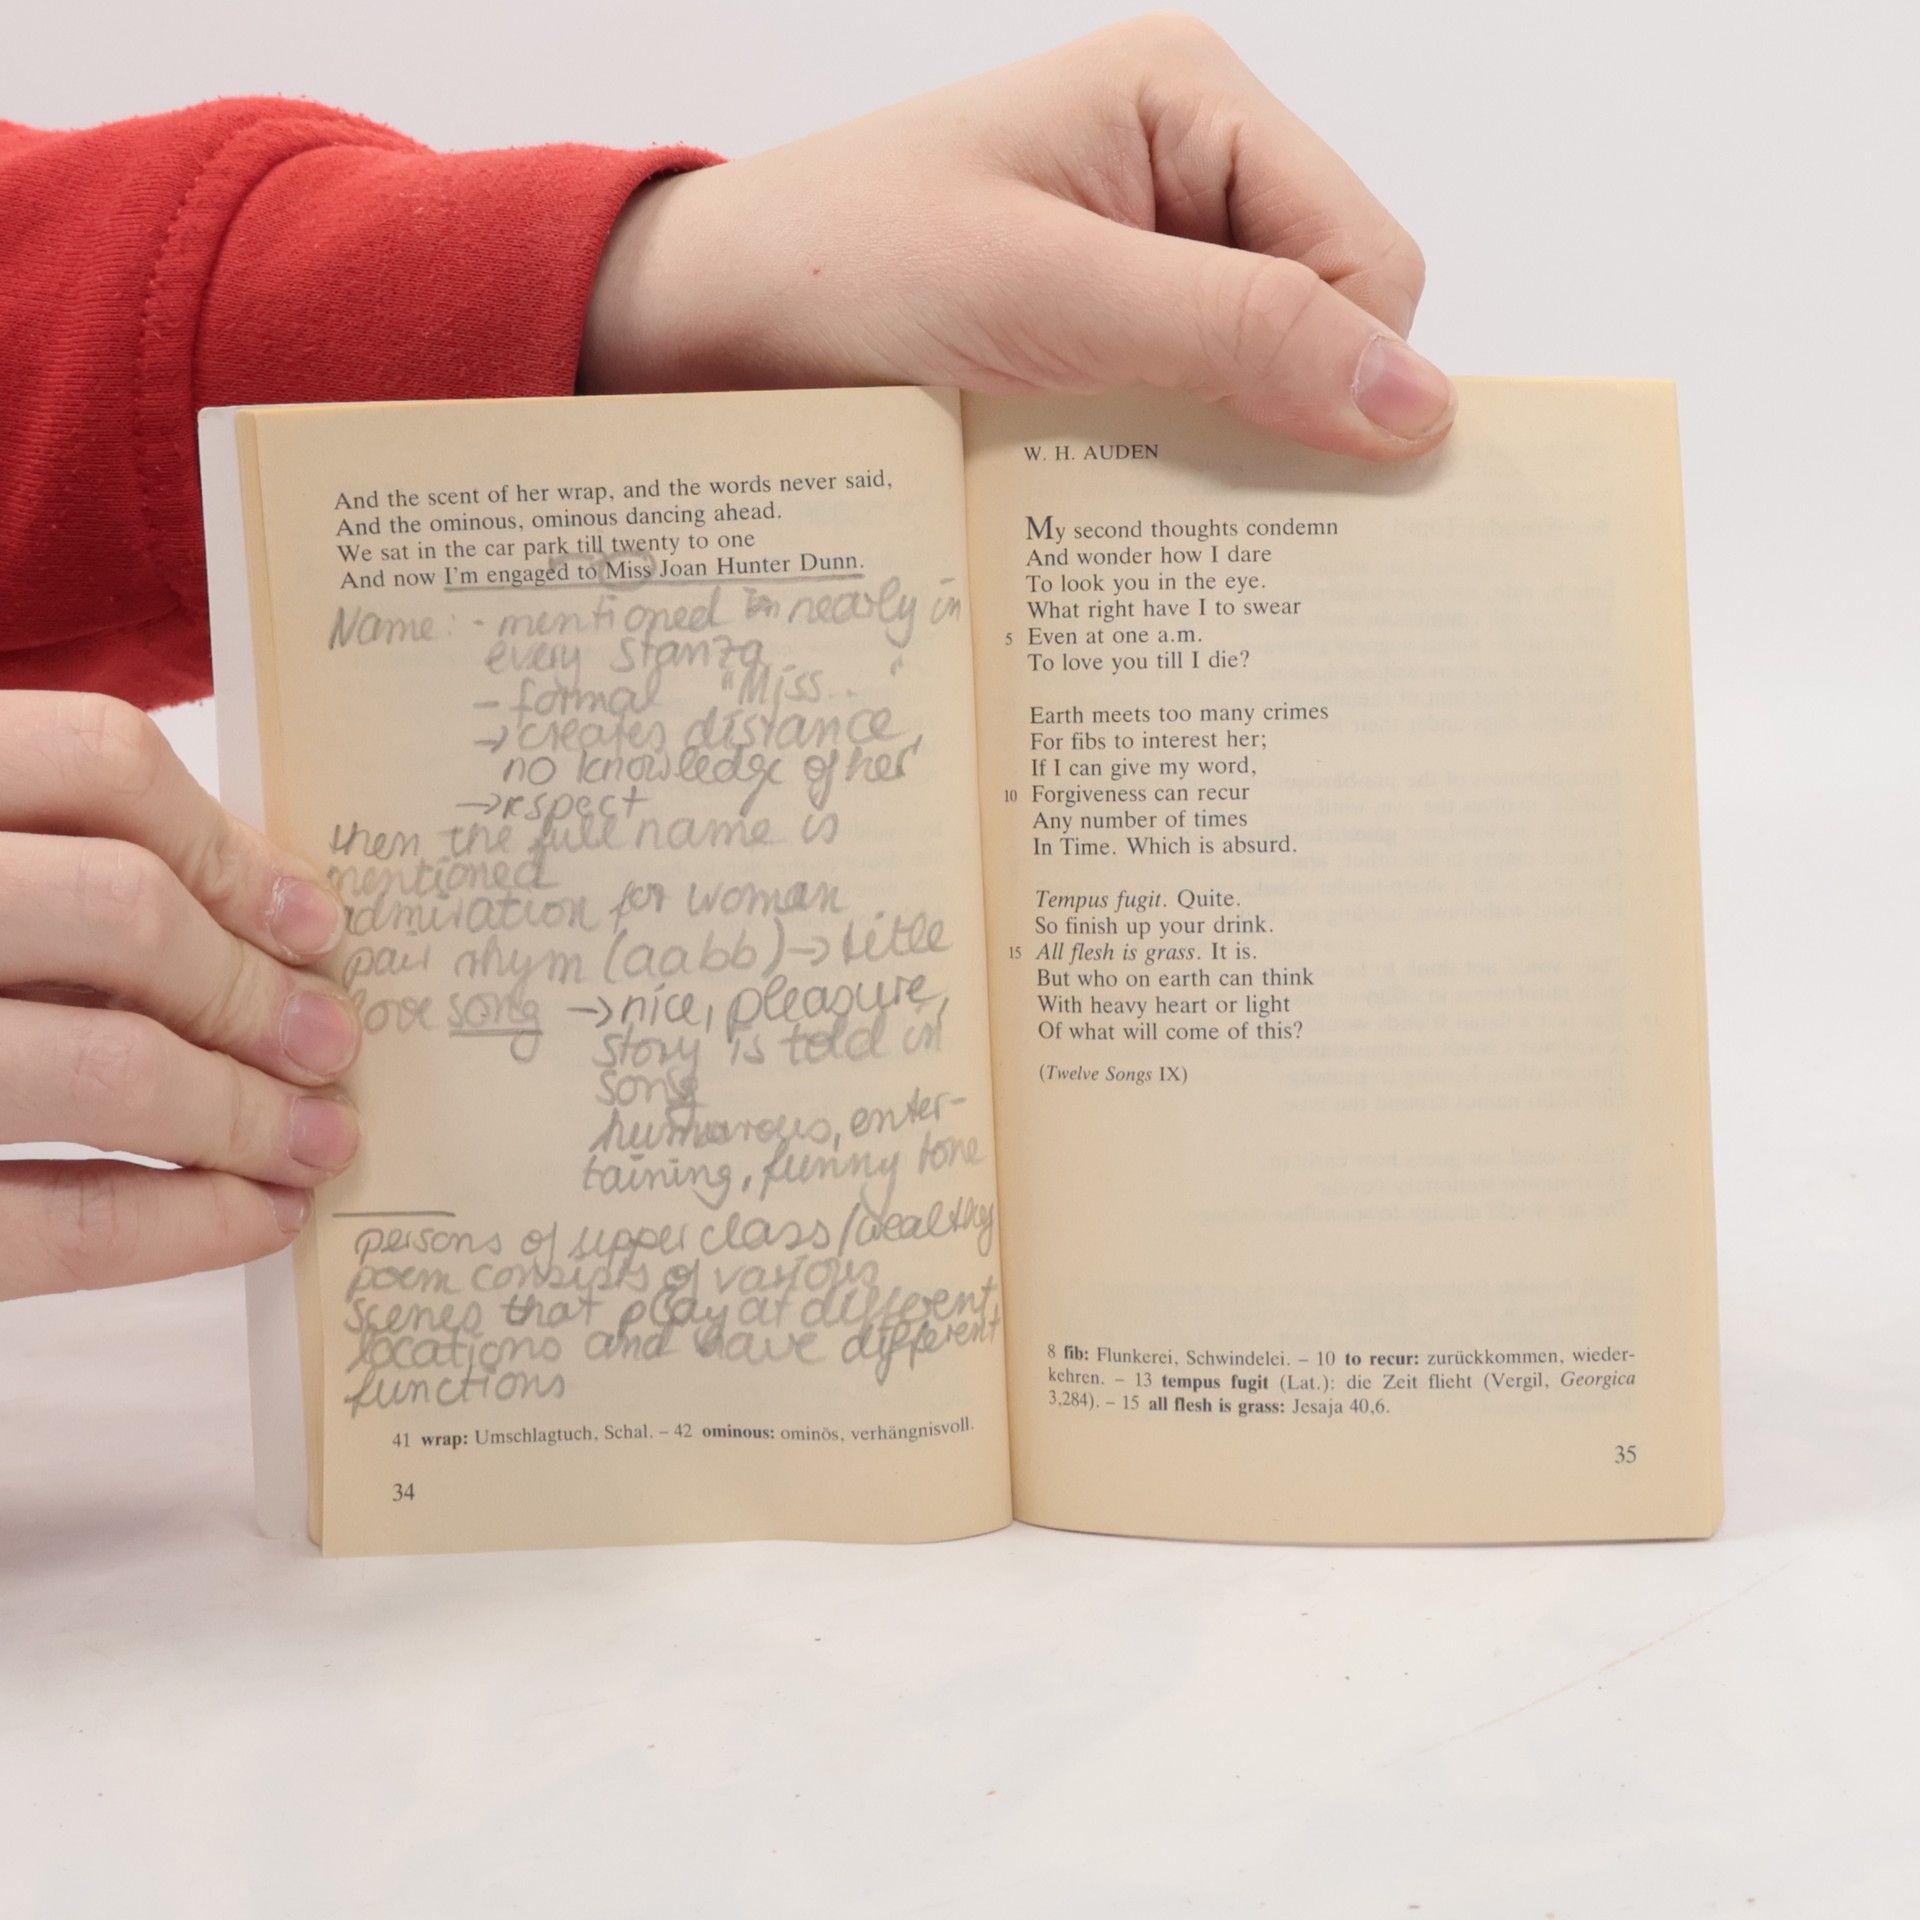 And the scent of her wrap, and the words never said,
And the ominous, ominous dancing ahead.
We sat in the car park till twenty to one
And now I'm engaged to Miss Joan Hunter Dunn.
Name: - mentioned nearly in
every stanza
- formal "Miss... "
→ creates distance,
no knowledge of her
→ respect
then the full name is
mentioned
admiration for woman
pair rhym (aabb) → title
love song → nice, pleasure,
story is told in
song
humorous, enter-
taining, funny tone
persons of upper class / wealthy
poem consists of various
scenes that play at different
locations and have different
functions
41 wrap: Umschlagtuch, Schal. – 42 ominous: ominös, verhängnisvoll.
34
W. H. AUDEN
My second thoughts condemn
And wonder how I dare
To look you in the eye.
What right have I to swear
5 Even at one a.m.
To love you till I die?
Earth meets too many crimes
For fibs to interest her;
If I can give my word,
10 Forgiveness can recur
Any number of times
In Time. Which is absurd.
Tempus fugit. Quite.
So finish up your drink.
15 All flesh is grass. It is.
But who on earth can think
With heavy heart or light
Of what will come of this?
(Twelve Songs IX)
8 fib: Flunkerei, Schwindelei. – 10 to recur: zurückkommen, wieder-
kehren. – 13 tempus fugit (Lat.): die Zeit flieht (Vergil, Georgica
3,284). – 15 all flesh is grass: Jesaja 40,6.
35